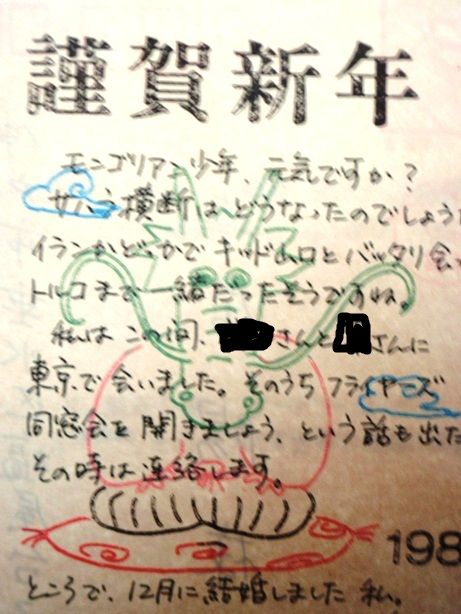 謹賀新年
モンゴリアン少年、元気ですか?
サハラ横断はどうなったのでしょう
イランかどっかでキッドムロとバッタリ会
トルコまで一緒だったそうですね。
私はこの間、さんとさんに
東京で会いました。そのうちフライヤーズ
同窓会を開きましょう、という話も出た
その時は連絡します。
198
ところで、12月に結婚しました 私。